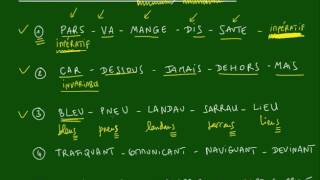 ① PARS - VA - MANGE - DIS - SAUTE - IMPÉRATIF
IMPÉRATIF
② CAR - DESSOUS - JAMAIS - DEHORS - MAIS
INVARIABLE
③ BLEU - PNEU - LANDAU - SARRAU - LIEU
bleus pneus landaus sarraus lieus
④ TRAFIQUANT - COMUNICANT - NAVIGUANT - DEVINANT